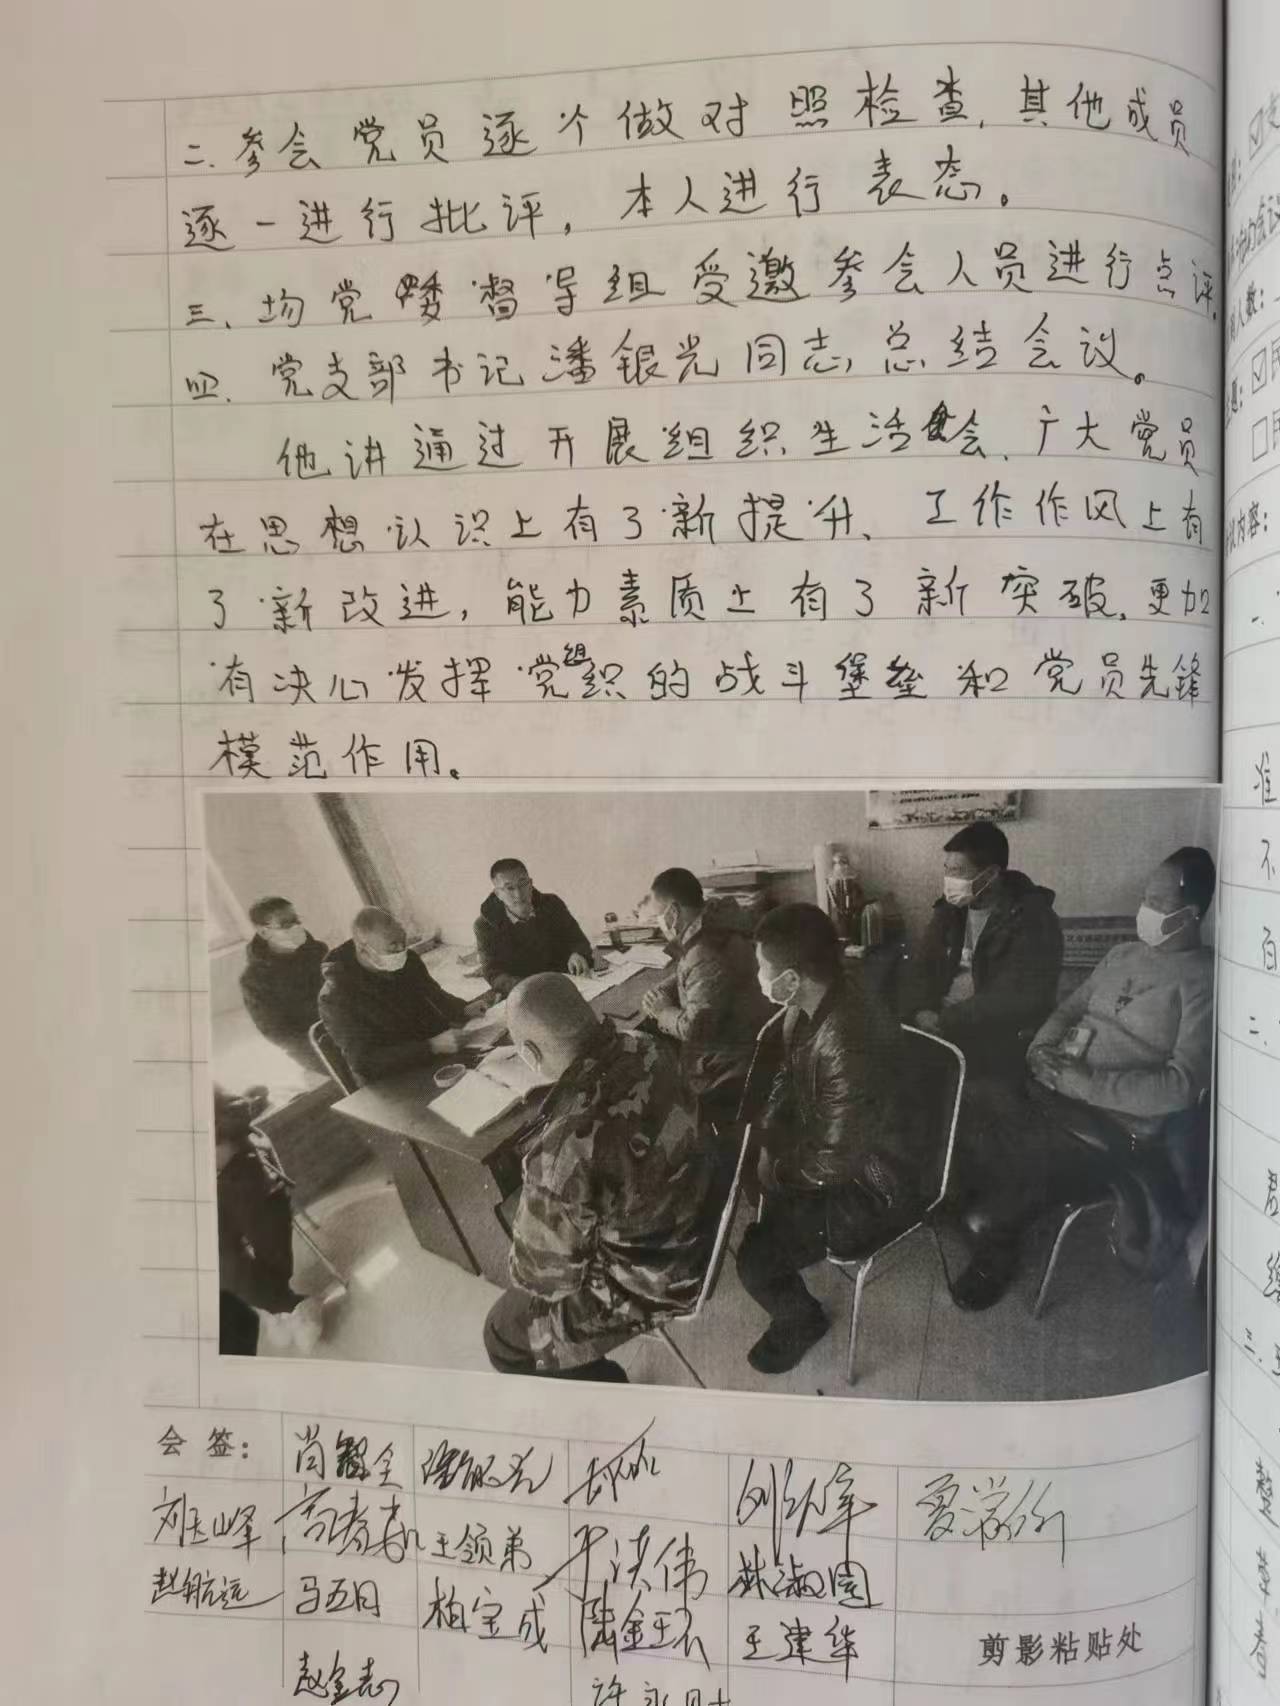 二、参会党员逐个做对照检查，其他成员
逐一进行批评，本人进行表态。
三、场党委督导组受邀参会人员进行点评。
四、党支部书记潘银光同志总结会议。
他讲通过开展组织生活会、广大党员
在思想认识上有了新提升、工作作风上有
了新改进，能力素质上有了新突破，更加
有决心发挥党组织的战斗堡垒和党员先锋
模范作用。
会签：
刘玉山峰
王领弟
赵航远
马五日
柏宝成
林淑园
王建华
赵金志
剪影粘贴处